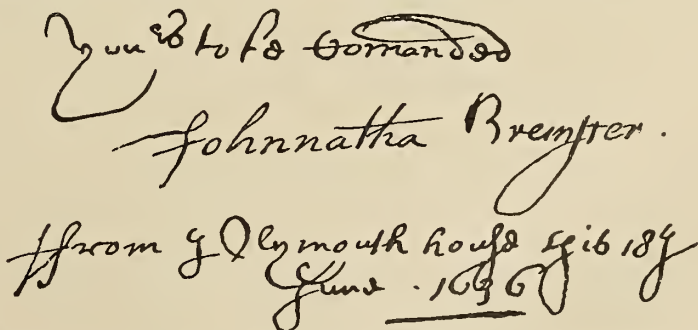 Youers to be Comanded
Johnnatha Brewster.
ffrom y Plymouth house this 18y
June . 1636